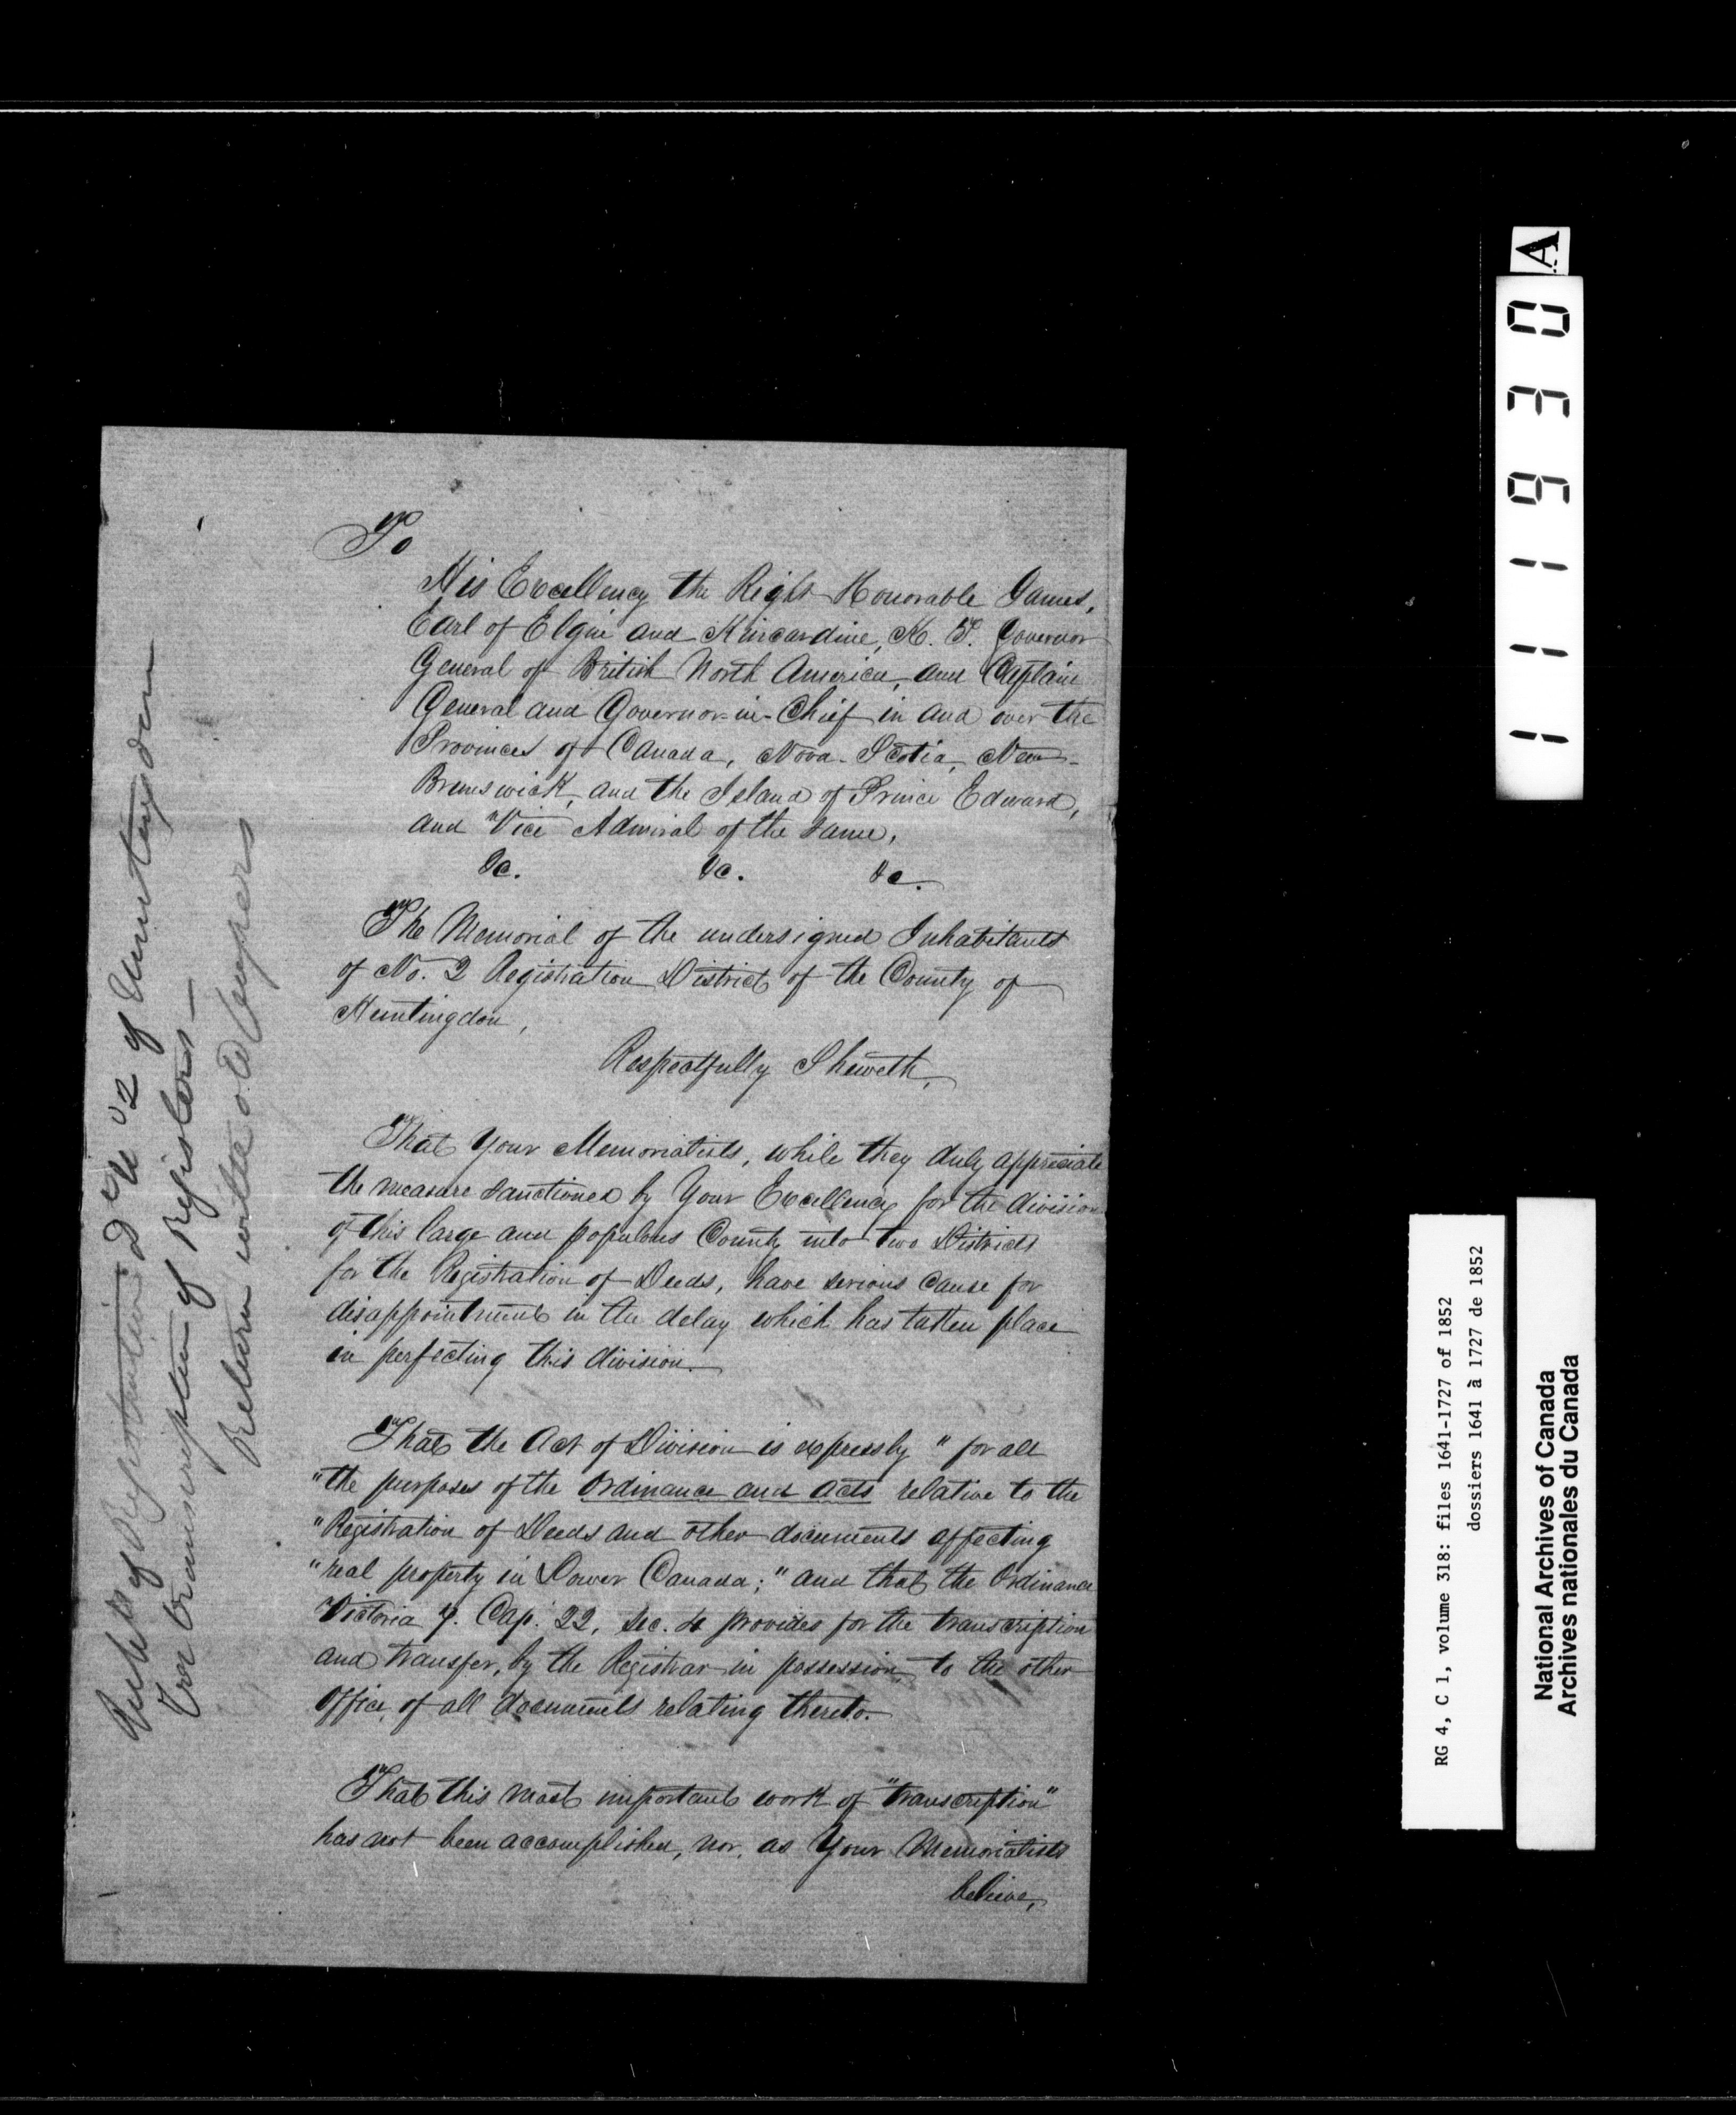 To
His Excellency the Right Honorable James,
Earl of Elgin and Kincardine, K. T. Governor
General of British North America, and Captain
General and Governor-in-Chief in and over the
Provinces of Canada, Nova-Scotia, New-
Brunswick, and the Island of Prince Edward,
and Vice Admiral of the same,
&c. &c. &c.
The Memorial of the undersigned Inhabitants
of No. 2 Registration District of the County of
Huntingdon,
Respectfully Sheweth,
That Your Memorialists, while they duly appreciate
the measure sanctioned by Your Excellency for the division
of this large and populous County into two Districts
for the Registration of Deeds, have serious cause for
disappointment in the delay which has taken place
in perfecting this division.
That the Act of Division is expressly " for all
"the purposes of the Ordinance and Acts relative to the
"Registration of Deeds and other documents affecting
"real property in Lower Canada;" and that the Ordinance
Victoria Cap. 22, Sec. provides for the transcription
and transfer, by the Registrar in possession, to the other
Office, of all documents relating thereto.
That this most important work of "transcription"
has not been accomplished, nor, as Your Memorialists
believe,
of Registration D No 2 of Huntingdon
For transcription of Registers —
Return with old papers
111930
A
RG 4, C 1, volume 318: files 1641-1727 of 1852
dossiers 1641 à 1727 de 1852
National Archives of Canada
Archives nationales du Canada